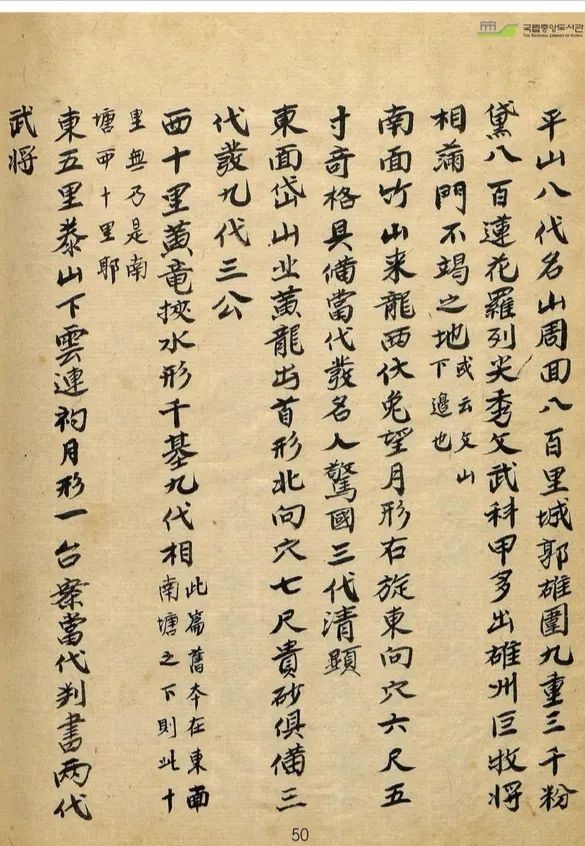 국립중앙도서관
THE NATIONAL LIBRARY OF KOREA
平山八代名山周回八百里城郭雄圍九重三千粉
黛八百蓮花羅列尖秀文武科甲多出雄州巨牧將
相滿門不竭之地或云文山下邊也
南面竹山来龍西伏兎望月形右旋東向穴六尺五
寸奇格具備當代發名人驚國三代清顯
東面岱山业黃龍出首形北向穴七尺貴砂俱備三
代發九代三公
西十里黃竜挾水形千基九代相此篇舊本在東面南塘之下則此十
里無乃是南塘西十里耶
東五里泰山下雲連初月形一台案當代判書两代
武将
50